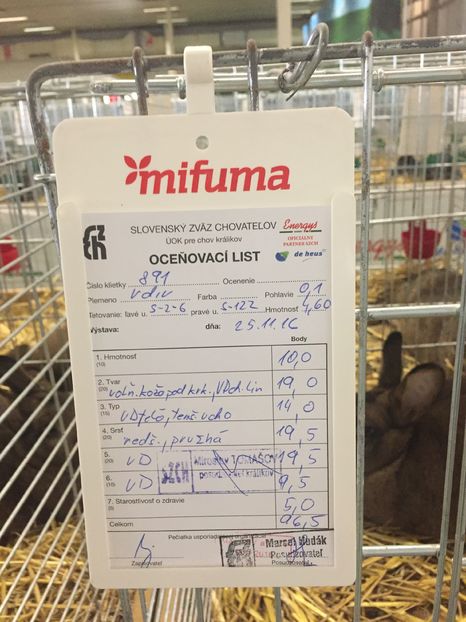 mifuma
SLOVENSKÝ ZVÄZ CHOVATEĽOV
ÚOK pre chov králikov
OCEŇOVACÍ LIST
Energys
OFICIÁLNY
PARTNER SZCH
de heus
Číslo klietky 891 Ocenenie
Plemeno Vdiv Farba Pohlavie 0,1
Tetovanie: ľavé u. S-2-6 pravé u. S-122 Hmotnosť 4,60
Výstava: dňa: 25.11.16
Body
1. Hmotnosť (10) 10,0
2. Tvar (20) voľn. koža pod krk., 19,0
3. Typ (15) 14,0
4. Srsť (20) redš., pružná 19,5
5. (20) VD 19,5
6. (15) VD 9,5
7. Starostlivosť o zdravie (5) 5,0
Celkom 96,5
SZCH Miroslav TOMAŠOV
Pečiatka usporiadateľa
Zapisovateľ
Marcel Hudák
Posudzovateľ
Posudzovateľ